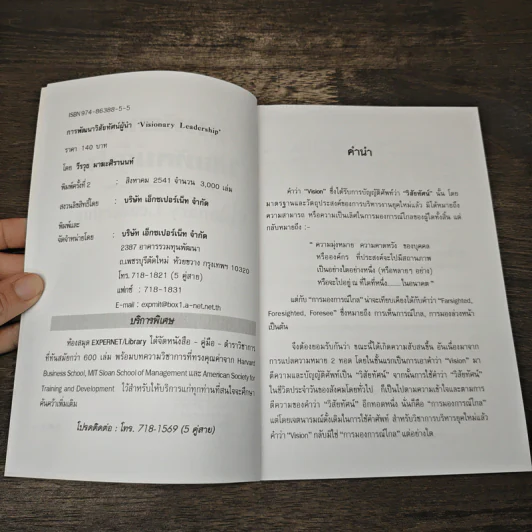 ISBN 974-86388-5-5
การพัฒนาวิสัยทัศน์ผู้นำ 'Visionary Leadership'
ราคา 140 บาท
โดย วีรวุธ มาฆะศิรานนท์
พิมพ์ครั้งที่ 2 : สิงหาคม 2541 จำนวน 3,000 เล่ม
สงวนลิขสิทธิ์โดย : บริษัท เอ็กซเปอร์เน็ท จำกัด
พิมพ์และ
จัดจำหน่ายโดย : บริษัท เอ็กซเปอร์เน็ท จำกัด
2387 อาคารรวมทุนพัฒนา
ถ.เพชรบุรีตัดใหม่ ห้วยขวาง กรุงเทพฯ 10320
โทร. 718-1821 (5 คู่สาย)
แฟกซ์ : 718-1831
E-mail : expmit@box1.a-net.net.th
บริการพิเศษ
ห้องสมุด EXPERNET/Library ได้จัดหนังสือ - คู่มือ - ตำราวิชาการ
ที่ทันสมัยกว่า 600 เล่ม พร้อมบทความวิชาการที่ทรงคุณค่าจาก Harvard
Business School, MIT Sloan School of Management และ American Society for
Training and Development ไว้สำหรับให้บริการแก่ทุกท่านที่สนใจจะศึกษา
ค้นคว้าเพิ่มเติม
โปรดติดต่อ : โทร. 718-1569 (5 คู่สาย)
คำนำ
คำว่า "Vision" ซึ่งได้รับการบัญญัติศัพท์ว่า "วิสัยทัศน์" นั้น โดย
มาตรฐานและวัตถุประสงค์ของการบริหารงานยุคใหม่แล้ว มิได้หมายถึง
ความสามารถ หรือความเป็นเลิศในการมองการณ์ไกลของผู้ใดทั้งสิ้น แต่
กลับหมายถึง :-
" ความมุ่งหมาย ความคาดหวัง ของบุคคล
หรือองค์กร ที่ประสงค์จะไปมีสถานภาพ
เป็นอย่างใดอย่างหนึ่ง (หรือหลายๆ อย่าง)
หรือจะไปอยู่ ณ ที่ใดที่หนึ่ง......ในอนาคต "
แต่กับ "การมองการณ์ไกล" น่าจะเทียบเคียงได้กับคำว่า "Farsighted,
Foresighted, Foresee" ซึ่งหมายถึง การเห็นการณ์ไกล, การมองล่วงหน้า
เป็นต้น
จึงต้องยอมรับกันว่า ขณะนี้ได้เกิดความสับสนขึ้น อันเนื่องมาจาก
การแปลความหมาย 2 ทอด โดยในชั้นแรกเป็นการเอาคำว่า "Vision" มา
ตีความและบัญญัติศัพท์เป็น "วิสัยทัศน์" จากนั้นการใช้คำว่า "วิสัยทัศน์"
ในชีวิตประจำวันของสังคมโดยทั่วไป ก็เป็นไปตามความเข้าใจและตามการ
ตีความของคำว่า "วิสัยทัศน์" อีกทอดหนึ่ง นั่นก็คือ "การมองการณ์ไกล"
แต่โดยเจตนารมณ์ดั้งเดิมในการใช้คำศัพท์ สำหรับวิชาการบริหารยุคใหม่แล้ว
คำว่า "Vision" กลับมิใช่ "การมองการณ์ไกล" แต่อย่างใด